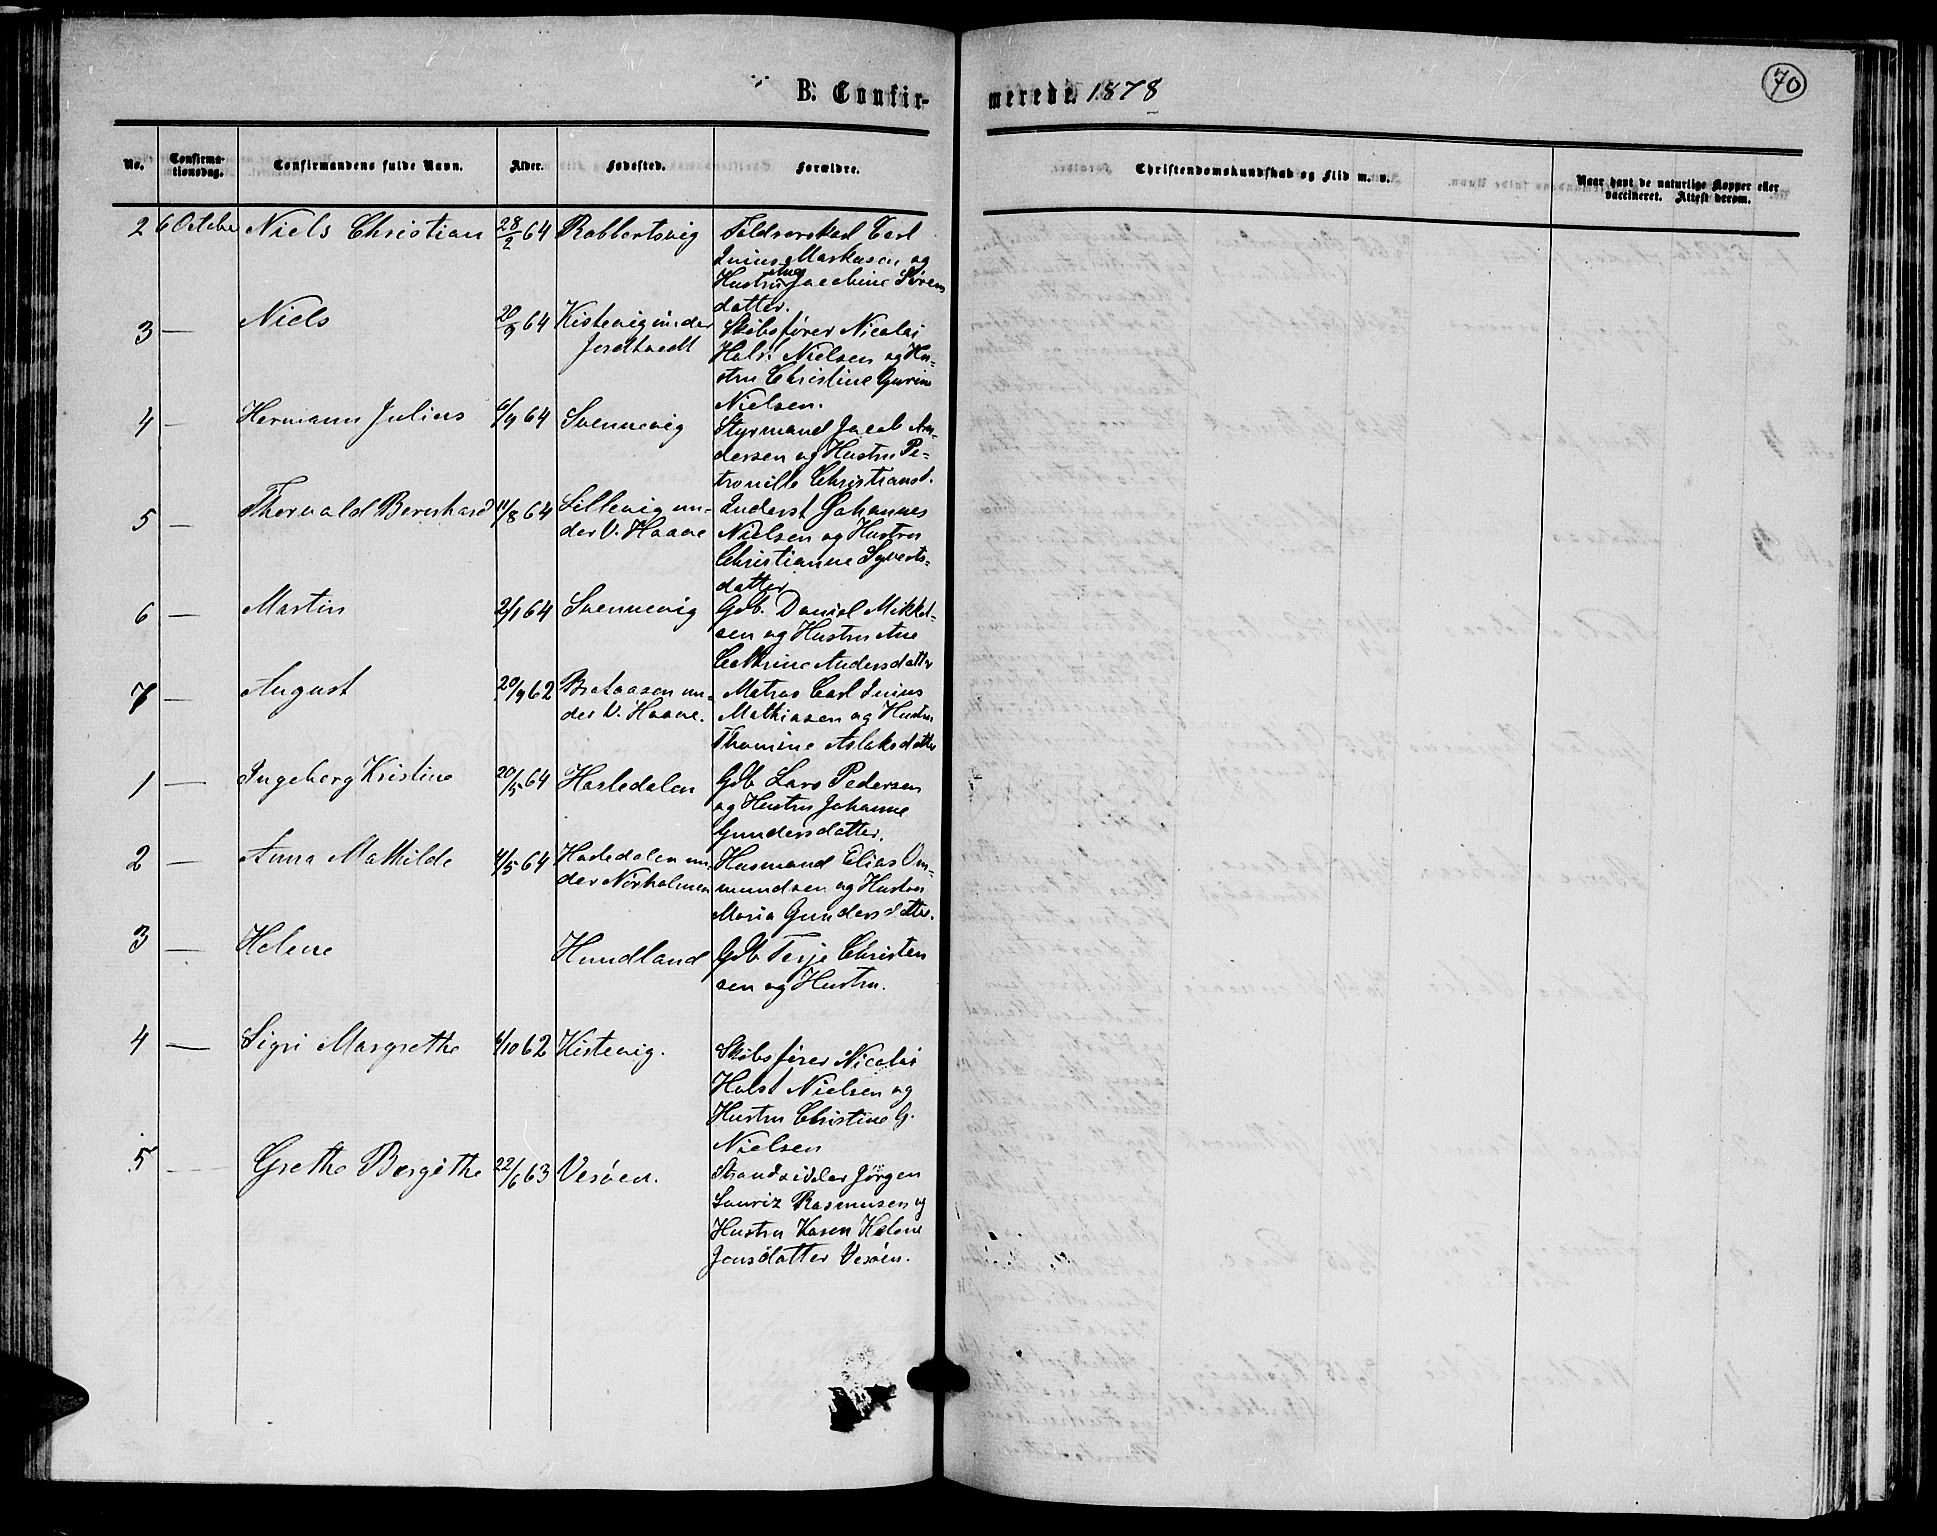 B. Confirmerede 1878
70
No.
Confirmationsdag.
Confirmandens fulde Navn.
Alder.
Fødested.
Forældre.
Christendomskundskab og Flid m. v.
Naar havt de naturlige Kopper eller
vaccineret. Attest derom.
2 6 October Niels Christian 28/2 64 Robbertsvig
Carl
Junius Markusen og
Hustru Jacobine Sørens
datter.
3 — Niels 20/9 64 Kistevig under
Skibsfører Nicolai
Nielsen og Hu-
stru Christine Gurine
Nielsen.
4 — Hermann Julius 6/9 64 Svennevig
Styrmand Jacob An-
dersen og Hustru Pe-
tronille Christiansd.
5 — Thorvald Bernhard 11/8 64 Lillevig un-
der V. Haave
Inderst Johannes
Nielsen og Hustru
Christianne Syverts-
datter
6 — Martin 2/1 64 Svennevig
Gdb. Daniel Mikkel-
sen og Hustru Ane
Cathrine Andersdatter
7 — August 20/9 62 Brataasen un-
der V. Haave.
Matros Carl Junius
Mathiasen og Hustru
Thomine Aslaksdatter
1 — Ingeborg Kristine 20/5 64 Hasledalen
Gdb Lars Pedersen
og Hustru Johanne
Gundersdatter.
2 — Anna Mathilde 4/5 64 Hasledalen un-
der Nørholmen
Husmand Elias Om-
mundsen og Hustru
Maria Gundersdatter.
3 — Helene Hundland
Gdb Terje Christen
sen og Hustru.
4 — Sigri Margrethe 6/10 62 Kistevig.
Skibsfører Nicolai
Holst Nielsen og
Hustru Christine G.
Nielsen
5 — Grethe Bergithe 22/6 63 Vesøen.
Strandsidder Jørgen
Lauriz Rasmusen og
Hustru Karen Helene
Jensdatter Vesøen.